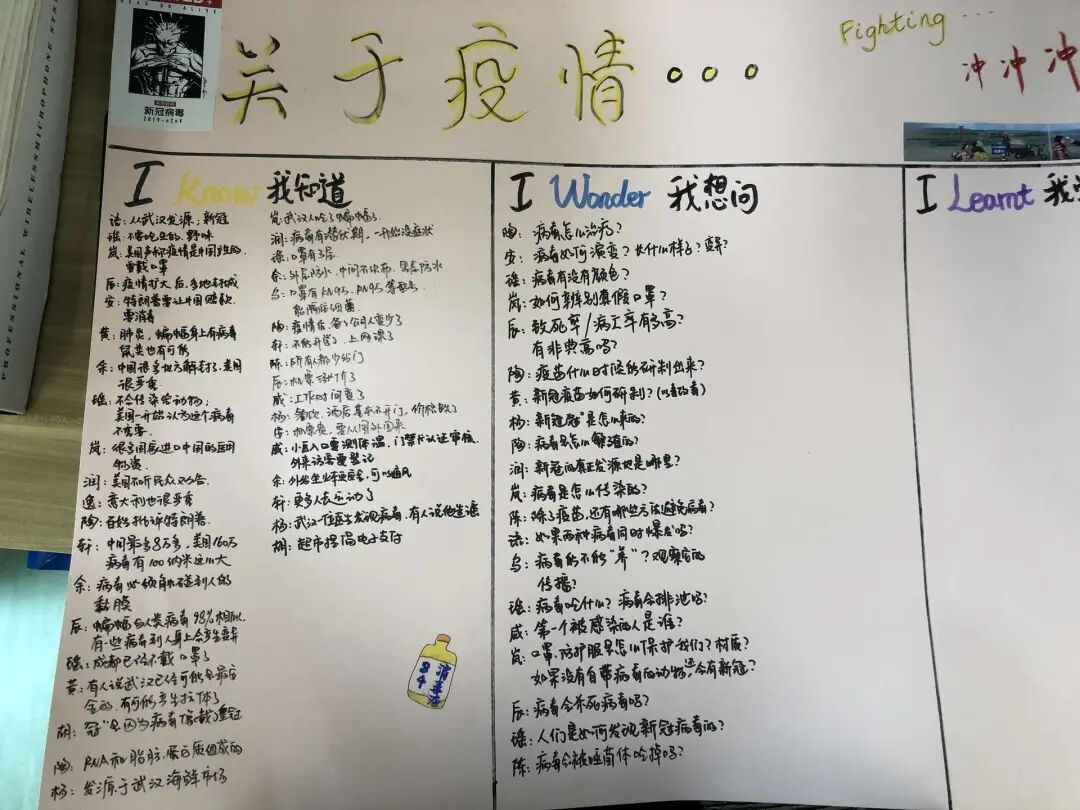 DEAD OR ALIVE
新冠病毒
2019-nCoV
PROFESSIONAL WIRELESS MICROPHONE
关于疫情...
Fighting ...
冲冲冲
I Know 我知道
诘:从武汉发源;新冠
瑶:不要吃生的、野味
岚:美国声称疫情是中国产生的.
要戴口罩
辰:疫情扩大后,各地
安:特朗普要让中国赔款
要消毒
黄:肺炎,蝙蝠身上有病毒
鼠类也有可能
余:中国很多地方解封了,美国
很严重
瑶:不会传染给动物;
美国一开始认为这个病毒
不严重
岚:很多国家进口中国的医用
物资
润:美国不听民众劝告.
逸:意大利也很严重
陶:百姓批评特朗普.
轩:中国最多8万多,美国160万
病毒有100纳米这么大
余:病毒必须触碰到人的
黏膜
辰:蝙蝠与人类病毒98%相似.
有一些病毒到人身上会产生变异
瑶:成都已经不戴口罩了
黄:有人说武汉已经可能是最安
全的,有可能产生抗体了
胡:"冠"是因为病毒像戴了皇冠
陶:RNA和脂肪、蛋白质组成的
杨:发源于武汉海鲜市场
岚:武汉人吃了蝙蝠了
润:病毒有潜伏期,一开始没症状
瑶:口罩有3层
余:外层防水,中间不织布,里层防水
乌:口罩有KN95、N95等型号
能隔住细菌
陶:疫情后,备了
轩:不能开学了,上网课了
陈:所有人都少出门
辰:机票涨价了
威:工作时间变了
杨:餐饮、酒店基本不开门,价格
威:小区入口要测体温,门禁卡认证审核,
外来访客要登记
余:外出坐
轩:更多人去运动了
杨:武汉一位医生发现病毒,有人说他造谣
胡:超市提倡电子支付
84
消毒液
I Wonder 我想问
陶:病毒怎么治疗?
安:病毒如何演变?长什么样子?变异?
瑶:病毒有没有颜色?
岚:如何辨别真假口罩?
辰:致死率/病亡率有多高?
有非典高吗?
陶:疫苗什么时候能研制出来?
黄:新冠疫苗如何研制?(以毒攻毒)
杨:"新冠"是怎么来的?
陶:病毒是怎么繁殖的?
润:新冠的真正发源地是哪里?
岚:病毒是怎么传染的?
陈:除了疫苗,还有哪些方法避免病毒?
诘:如果两种病毒同时爆发呢?
乌:病毒能不能"养"?观察它的
传播?
瑶:病毒吃什么?病毒会排泄吗?
威:第一个被感染的人是谁?
岚:口罩、防护服是怎么保护我们?材质?
如果没有自带病毒的动物,还会有新冠?
辰:病毒会杀死病毒吗?
瑶:人们是如何发现新冠病毒的?
陈:病毒会被噬菌体吃掉吗?
I Learnt 我